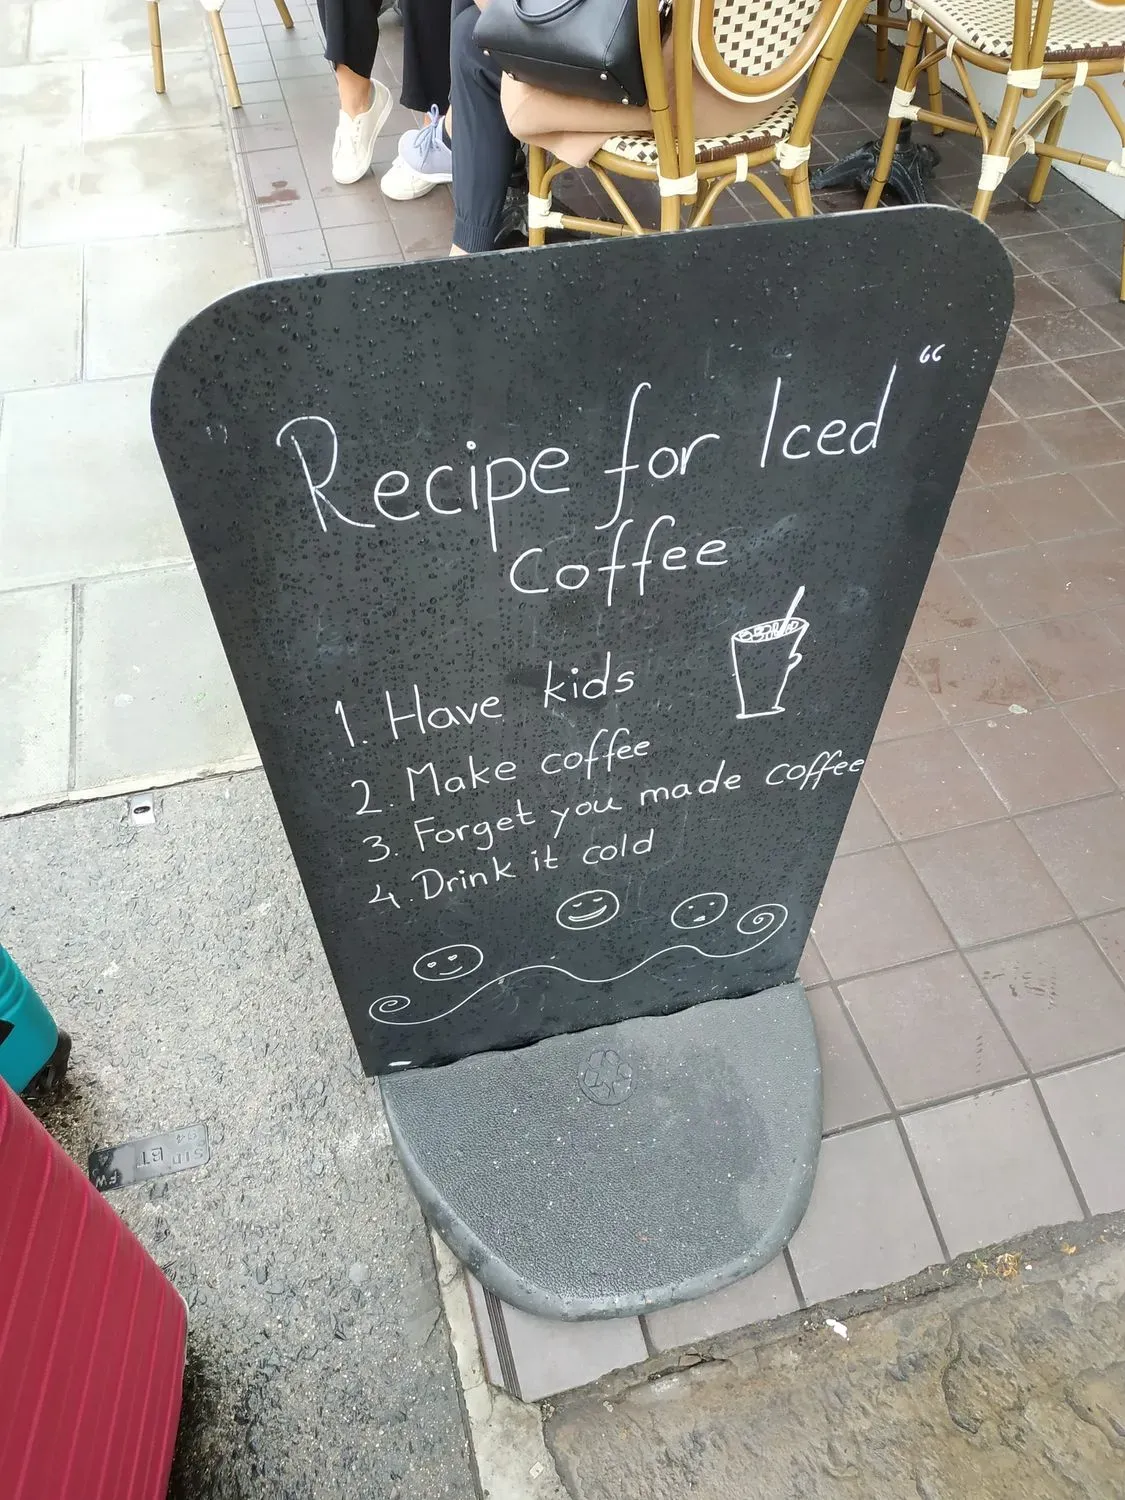 Recipe for Iced "
Coffee
1. Have kids
2. Make coffee
3. Forget you made coffee
4. Drink it cold